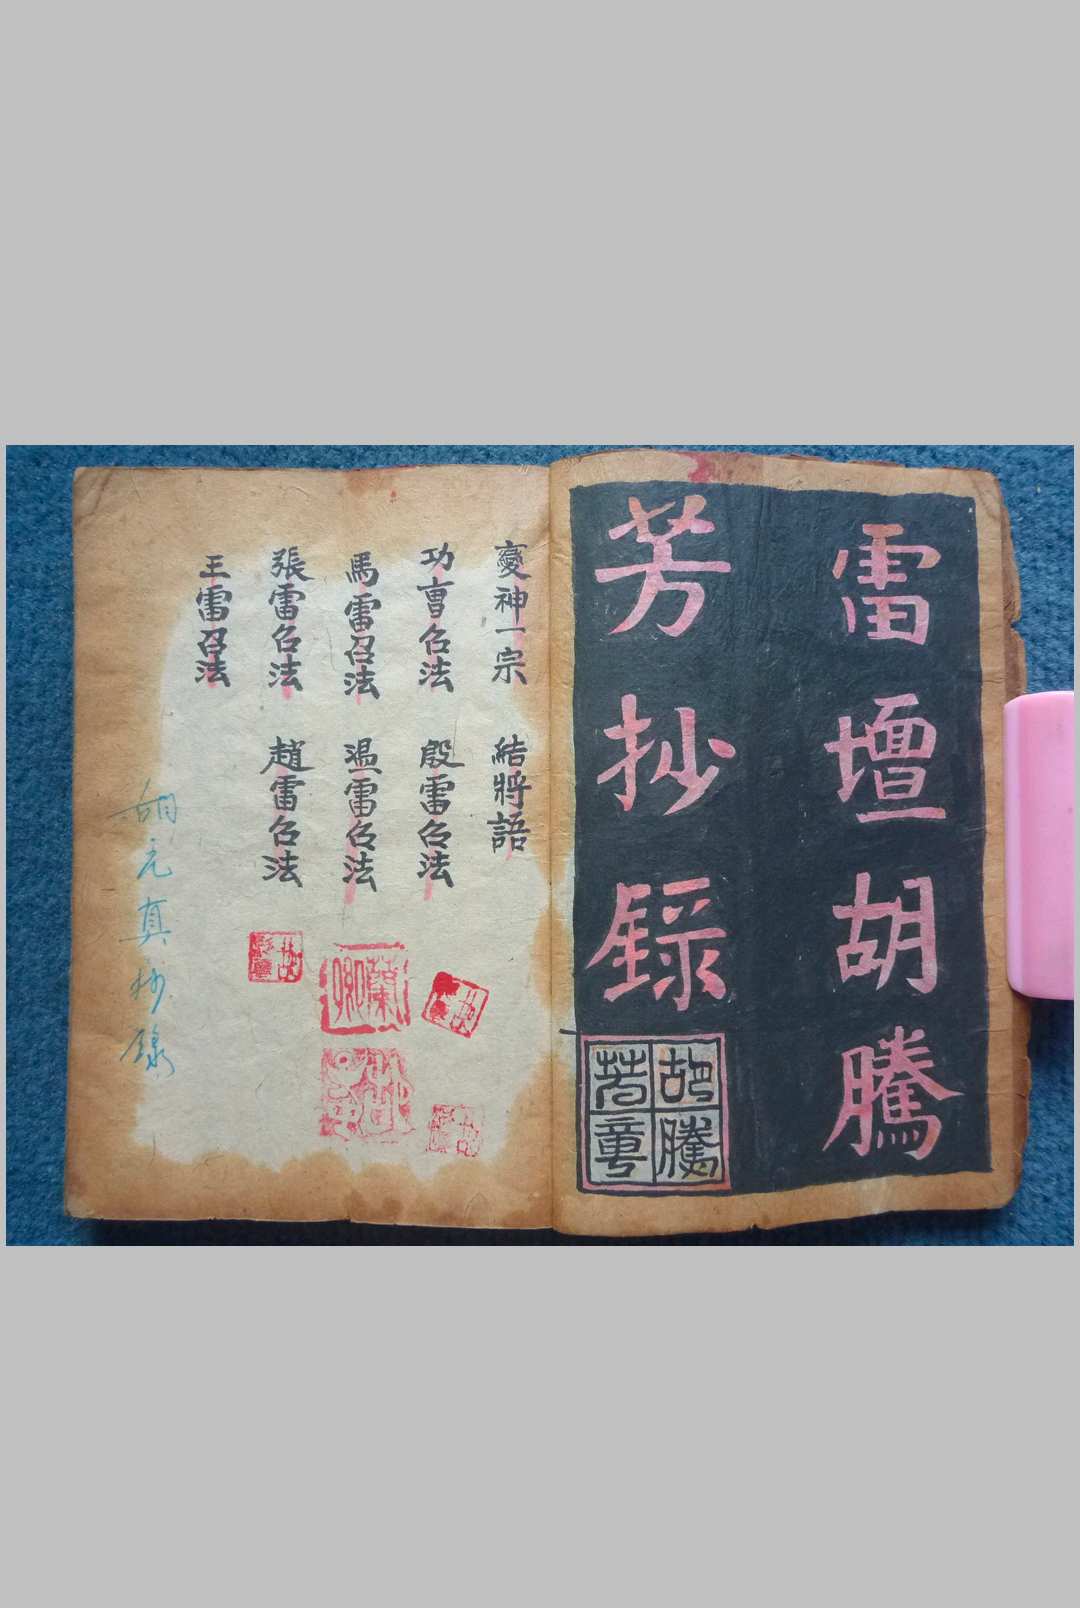 雷壇胡騰
芳抄録
胡騰
變神一宗 結將語
功曹召法 殷雷召法
馬雷召法 温雷召法
張雷召法 趙雷召法
王雷召法
胡元真抄錄